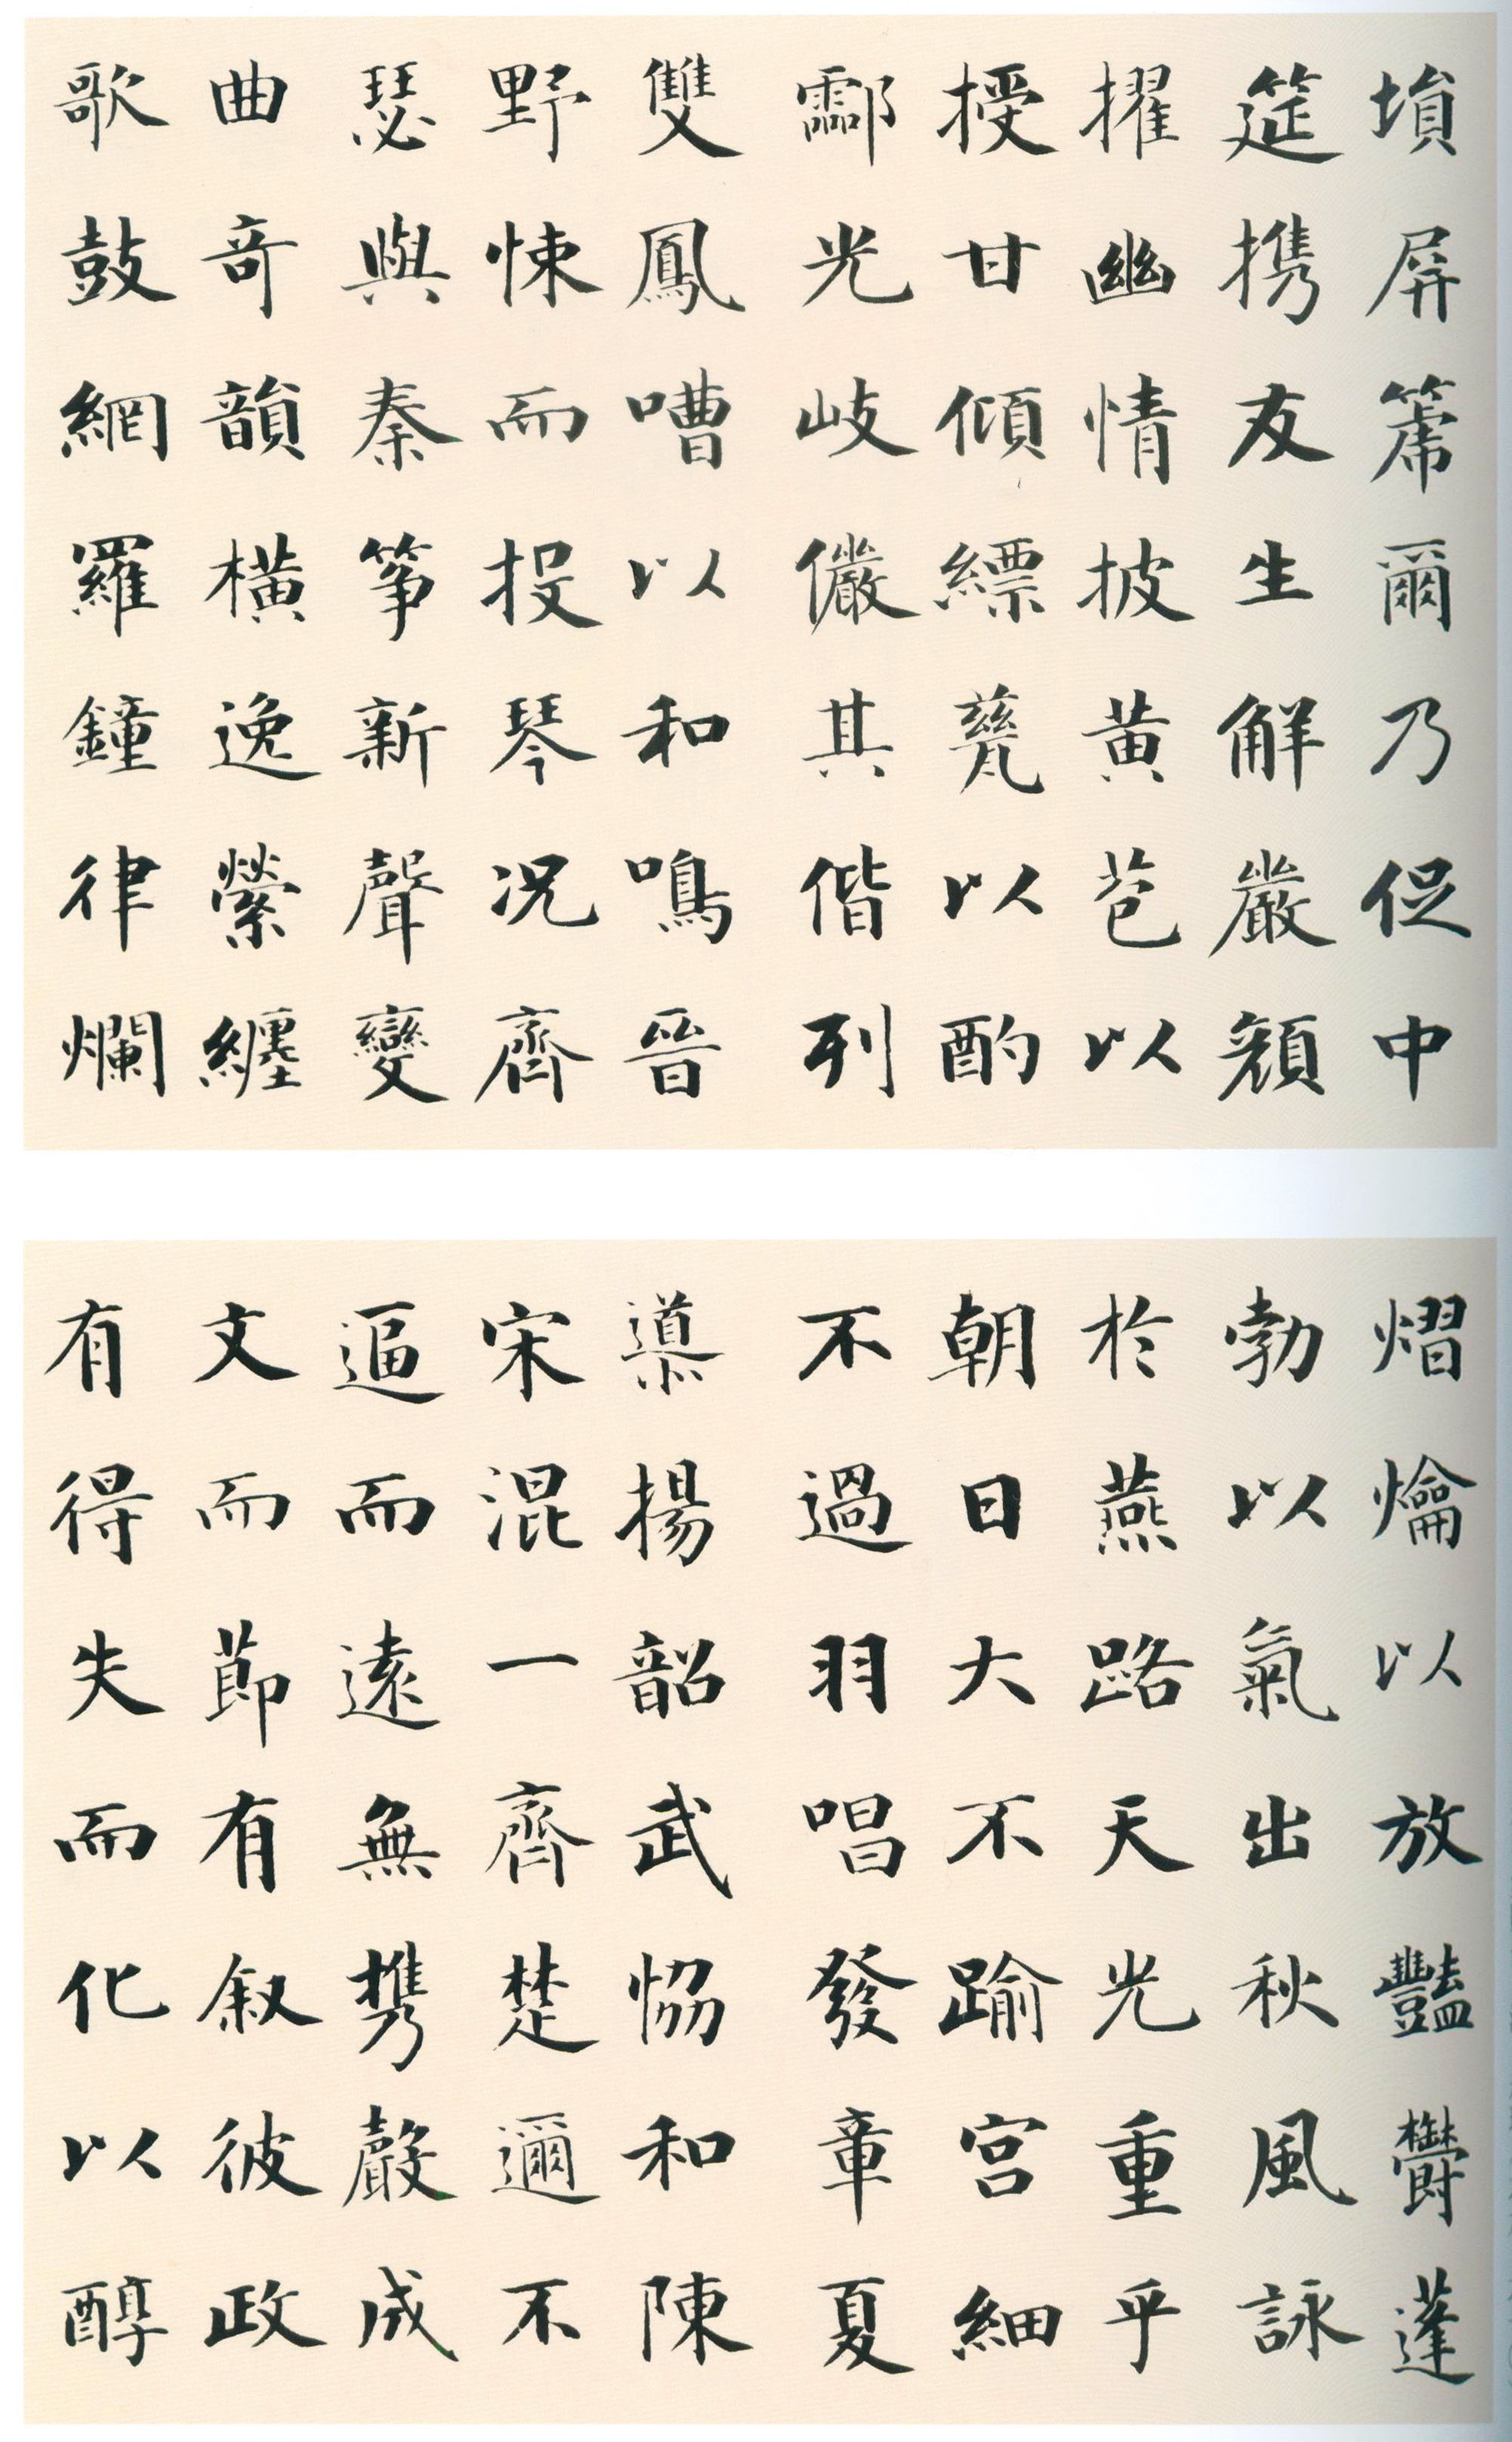 塤屏箎爾乃促中
筵携友生解嚴顔
擢幽情披黄苞以
授甘傾縹瓷以酌
酃光岐儼其偕列
雙鳳嘈以和鳴晉
野悚而投琴况齊
瑟與秦筝新聲變
曲奇韻横逸縈纏
歌鼓網羅鐘律爛
熠爚以放豔鬱蓬
勃以氣出秋風詠
於燕路天光重乎
朝日大不踰宫細
不過羽唱發章夏
導揚韶武協和陳
宋混一齊楚邇不
逼而遠無携聲成
文而節有叙彼政
有得失而化以醇